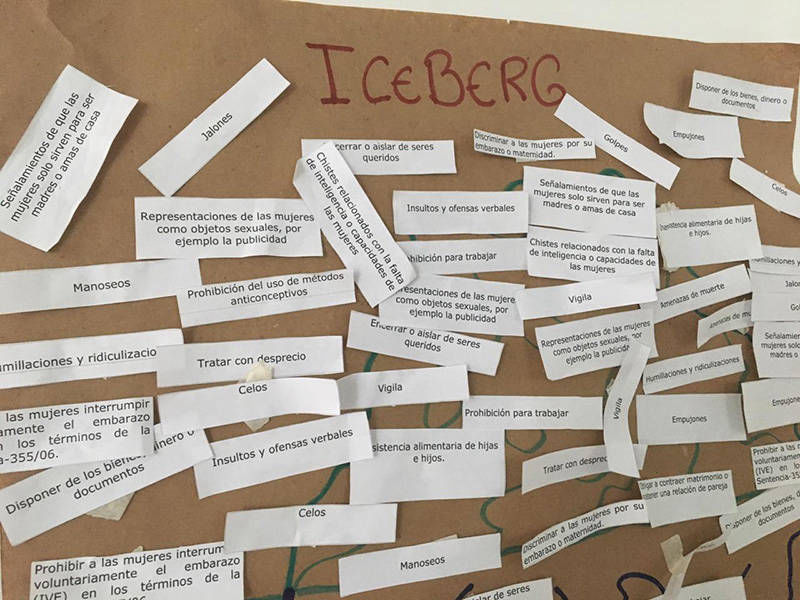 ICEBERG
Señalamientos de que las
mujeres solo sirven para ser
madres o amas de casa
Jalones
cerrar o aislar de seres
queridos
Discriminar a las mujeres por su
embarazo o maternidad.
Golpes
Disponer de los bienes, dinero o
documentos
Empujones
Celos
Representaciones de las mujeres
como objetos sexuales, por
ejemplo la publicidad
Chistes relacionados con la falta
de inteligencia o capacidades de
las mujeres
Insultos y ofensas verbales
Señalamientos de que las
mujeres solo sirven para ser
madres o amas de casa
sistencia alimentaria de hijas
e hijos.
ohibición para trabajar
Chistes relacionados con la falta
de inteligencia o capacidades de
las mujeres
umillaciones y
Jalones
Go
Manoseos
Prohibición del uso de métodos
anticonceptivos
resentaciones de las mujere
como objetos sexuales, por
ejemplo la publicidad
Vigila
Amenazas de muerte
Amenazas de mu
Encerrar o aislar de seres
queridos
Representaciones de las mujeres
como objetos sexuales, po
ejemplo la public
Señalamientos
mujeres solo
madres o a
umillaciones y ridiculizacio
Tratar con desprecio
Humillaciones y ridiculizaciones
Celos
Vigila
Prohibición para trabajar
Vigila
Empujones
Empujone
las mujeres interrumpir
amente el embarazo
n los términos de la
a-355/06.
Disponer de los bienes, dinero o
documentos
Insultos y ofensas verbales
sistencia alimentaria de hijas
e hijos.
Tratar con desprec
igar a contraer matrimonio o
ostener una relación de pareja
Prohibir a las
voluntariamente
(IVE) en los
Sentencia-35
Celos
Discriminar a las mujeres por su
embarazo o maternidad.
sponer de los bienes, d
documentos
Prohibir a las mujeres interrum
voluntariamente el embarazo
(IVE) en los términos de la
Manoseos
aislar de ser